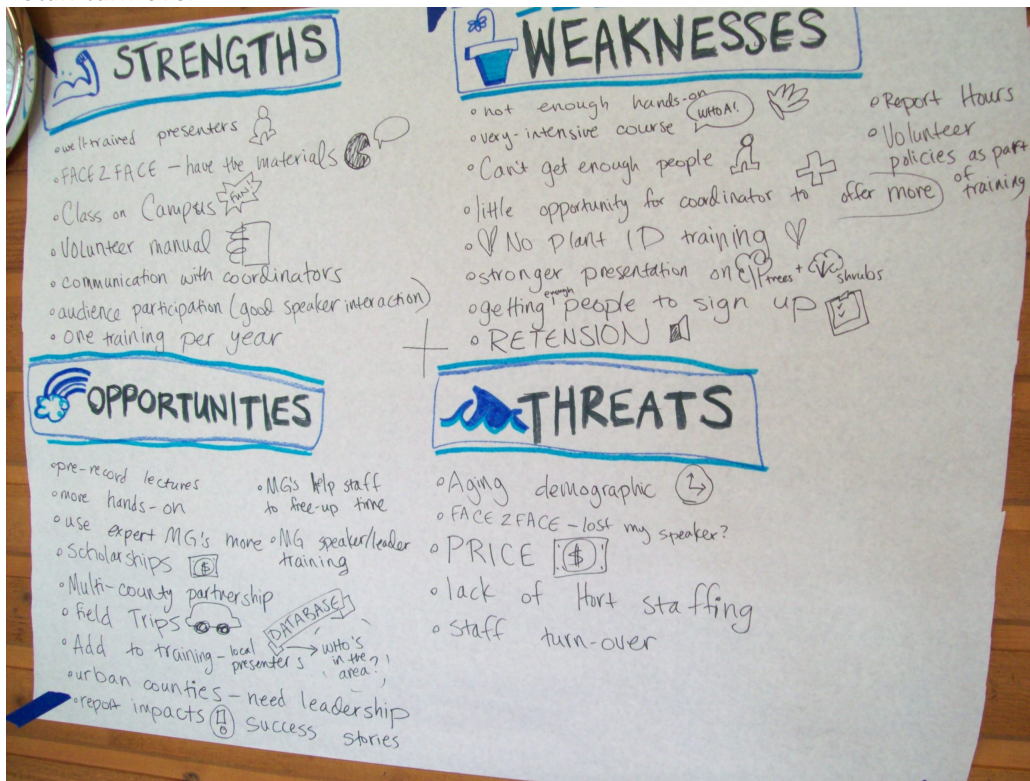 STRENGTHS
• well-trained presenters
• FACE 2 FACE – have the materials
• Class on Campus FUN!
• Volunteer manual
• communication with coordinators
• audience participation (good speaker interaction)
• one training per year
WEAKNESSES
• not enough hands-on
• very-intensive course WHOA!
• Can't get enough people
• little opportunity for coordinator to offer more
• No Plant ID training
• stronger presentation on trees + shrubs
• getting enough people to sign up
• RETENSION
• Report Hours
• Volunteer
policies as part
of training
OPPORTUNITIES
• pre-record lectures
• more hands-on
• use expert MG's more
• Scholarships $
• Multi-county partnership
• Field Trips
• Add to training – local
presenters
DATABASE
WHO'S
in the
area?!
• urban counties – need leadership
• report impacts ! success
stories
• MG's help staff
to free-up time
• MG speaker/leader
training
THREATS
• Aging demographic
• FACE 2 FACE – lost my speaker?
• PRICE $
• lack of Hort staffing
• staff turn-over